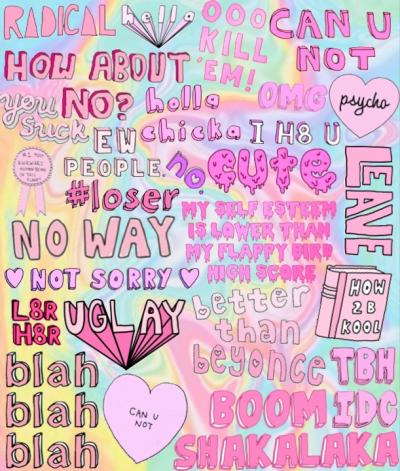 RADICAL
hella
OOO
KILL
'EM!
CAN U
NOT
HOW ABOUT
NO?
you
suck
holla
OMG
psycho
EW
PEOPLE.
chicka
I H8 U
#1 MOST
AWKWARD
HUMAN BEING
ON THIS
PLANET
no.
cute
LEAVE
#loser
NO WAY
MY SELF ESTEEM
IS LOWER THAN
MY FLAPPY BIRD
HIGH SCORE
NOT SORRY
HOW
2 B
KOOL
L8R
H8R
UGLAY
better
than
beyonce
TBH
blah
blah
blah
CAN U
NOT
BOOM
IDC
SHAKALAKA